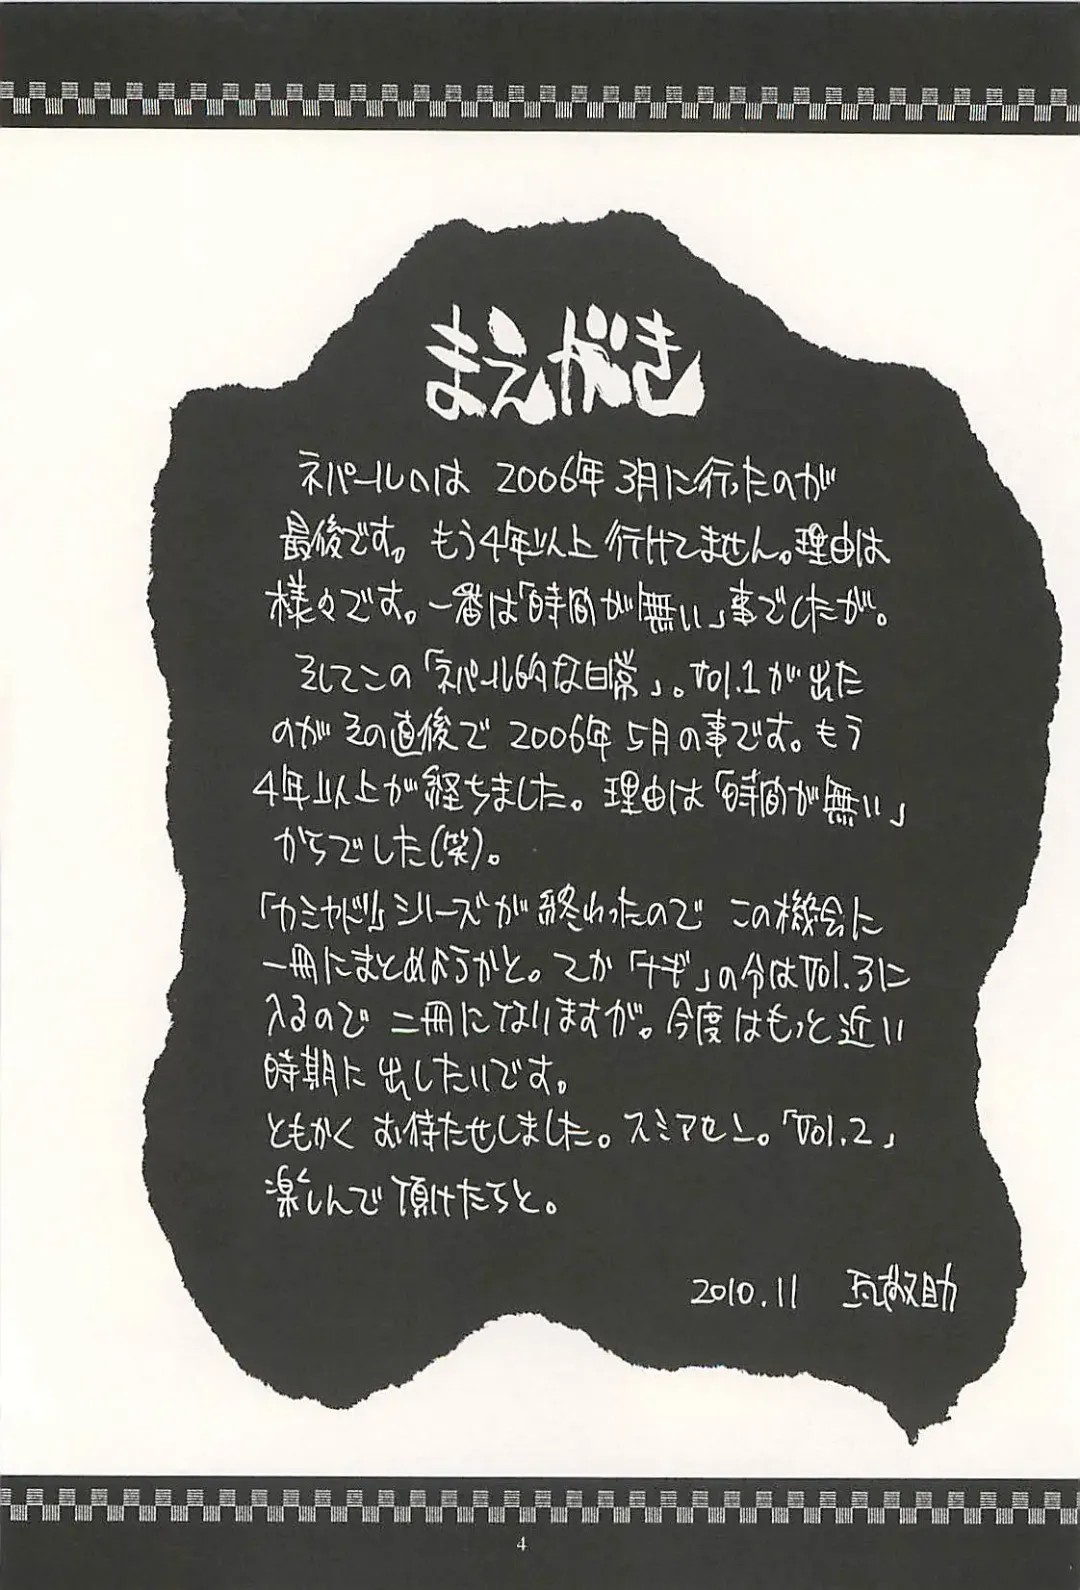 まえがき
ネパールへは 2006年 3月に行ったのが
最後です。もう4年以上 行けてません。理由は
様々です。一番は「時間が無い」事でしたが。
そしてこの「ネパール的な日常」。Vol.1が出た
のがその直後で 2006年5月の事です。もう
4年以上が経ちました。理由は「時間が無い」
からでした(笑)。
「カミヤドリ」シリーズが終わったので この機会に
一冊にまとめようかと。てか「ナギ」の分はVol.3に
入るので 二冊になりますが。今度はもっと近い
時期に出したいです。
ともかく お待たせしました。スミマセン。「Vol.2」
楽しんで頂けたらと。
2010.11
4